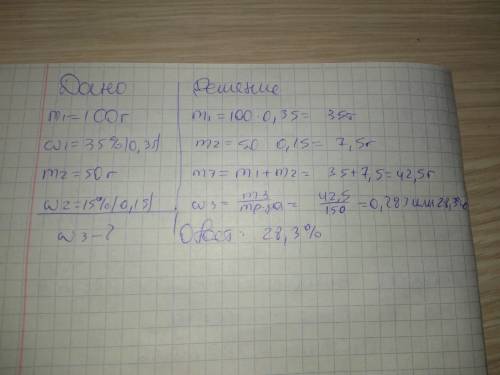 Дано
m₁=100г
ω1=35%(0,35)
m2=50г
ω2=15%(0,15)
ω3-?
Решение
m₁=100·0,35= 35г
m2=50 0,15= 7,5г
m3= m1+m2= 35+7,5=42,5г
ω3= m3/mр-ра = 42,5/150 =0,283 или 28,3%
Ответ: 28,3%